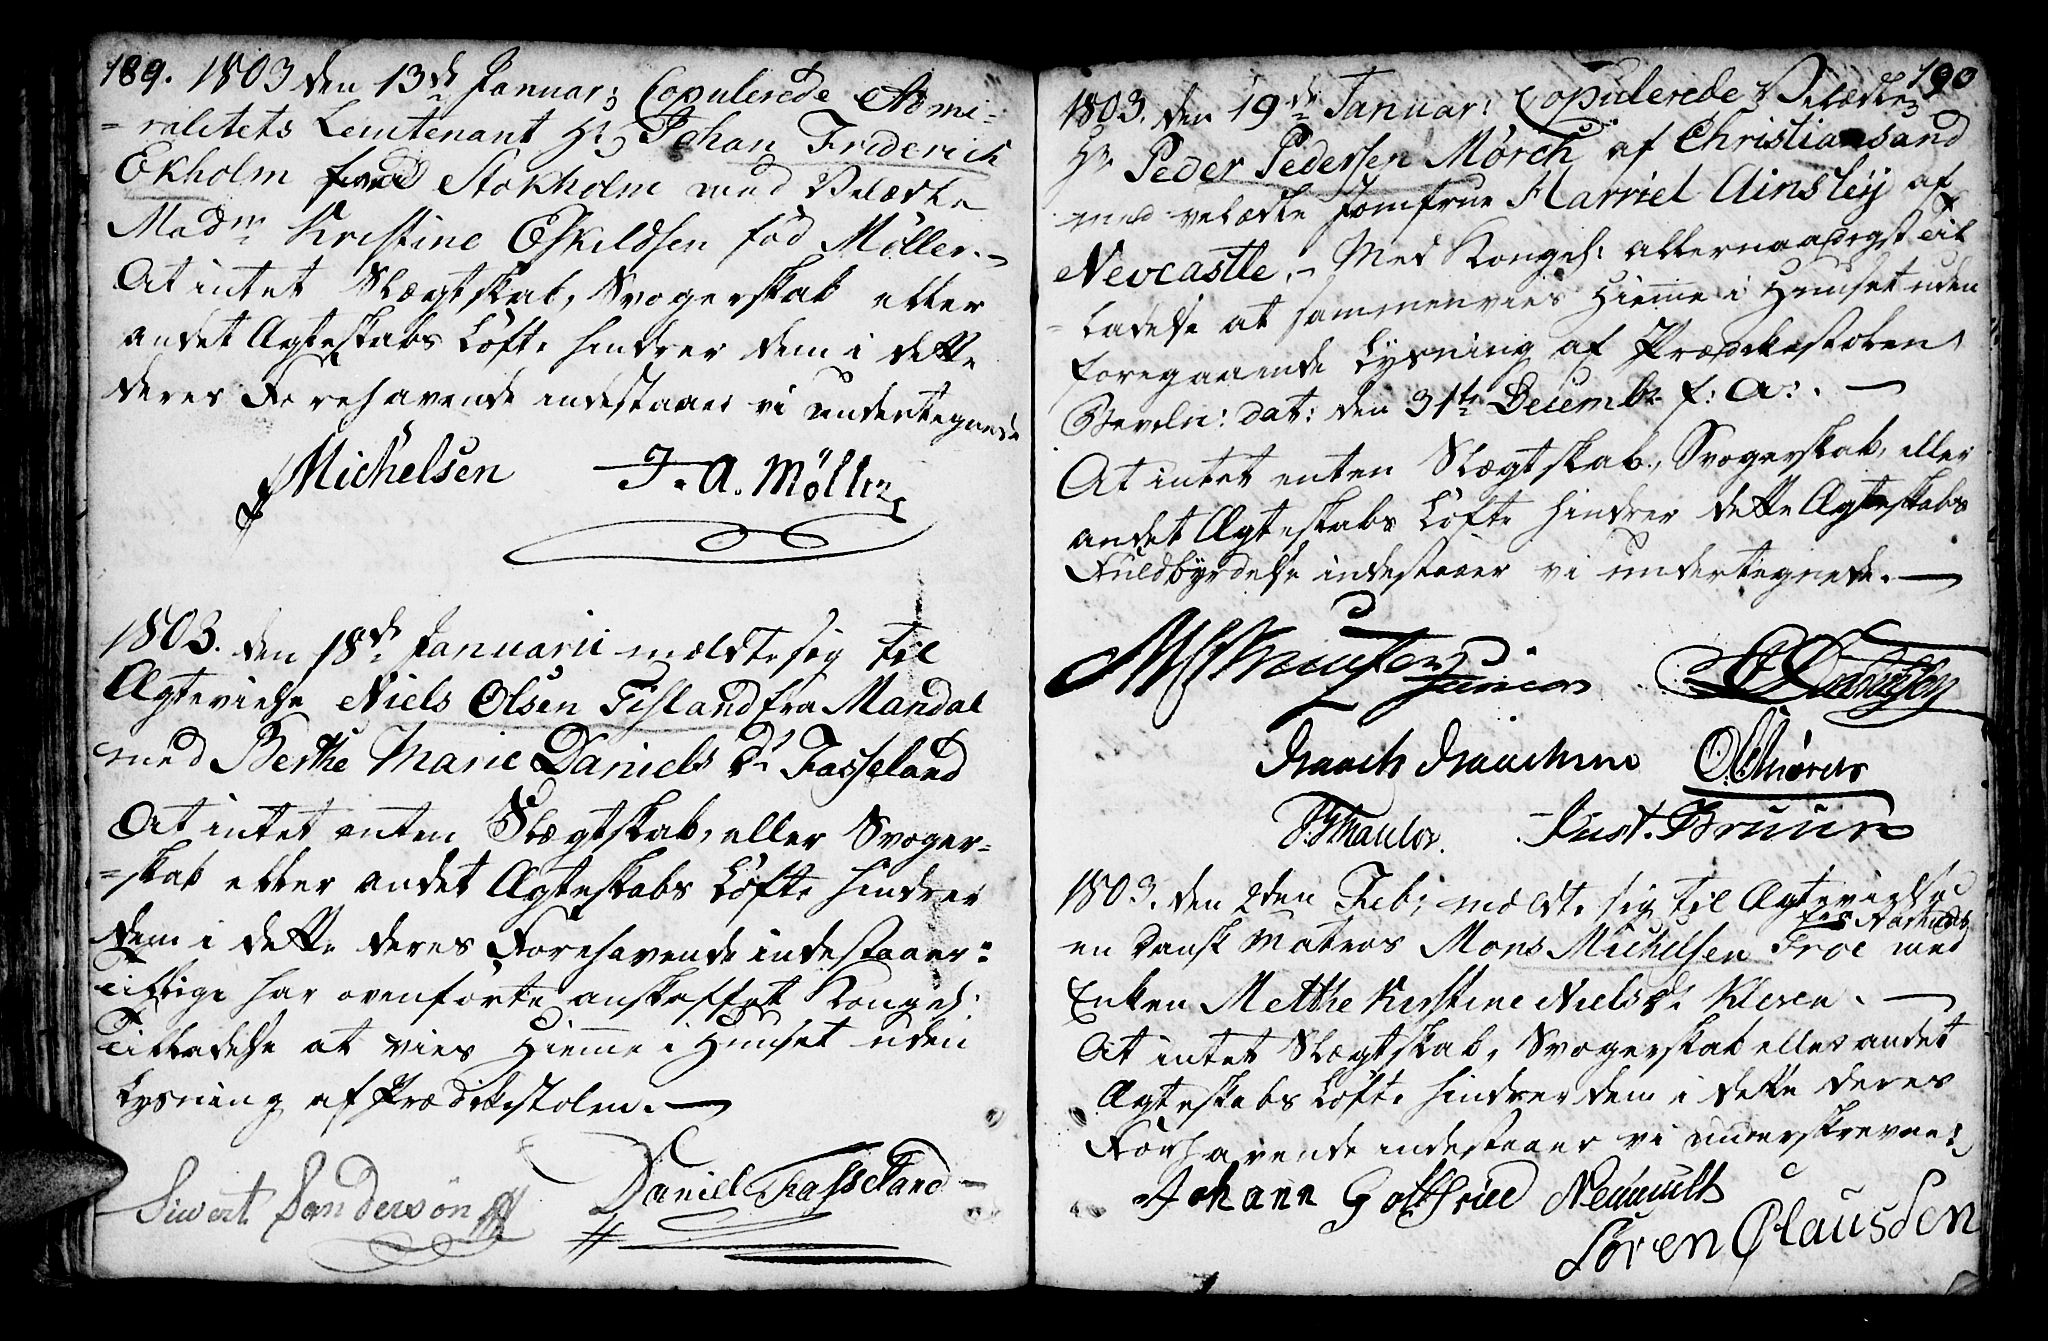 189. 1803 den 13de Januar: Copulerede Admi-
=ralitets Leutenant Hr Johan Friderich
Ekholm Stokholm med Velædle
Madm Kristine Eskildsen fød Møller.-
At intet Slægtskab, Svogerskab eller
andet Ægteskabs Løfte hindrer dem i dette
deres Forehavende indestaaer vi undertegnede
Michelsen J. A. Møller
1803. den 18de Januarii meldte sig til
Ægtevielse Niels Olsen Fisland fra Mandal
med Berthe Marie Daniels Dr Fasseland
At intet enten Slægtskab, eller Svoger=
=skab eller andet Ægteskabs Løfte hindrer
dem i dette deres Forehavende indestaaer:
tillige har ovenførte anskaffet Kongel:
Tilladelse at vies Hiemme i Huuset uden
Lysning af Prædikestolen.—
Siwert Sandersøn Daniel Fasseland
190
1803. den 19de Januar: Copulerede Velædle
Hr Peder Pedersen Mörch af Christiansand
med velædle Jomfrue Harriel Ainsley af
Nevcastle.- Med Kongel: allernaadigst Til
=ladelse at sammenvies Hiemme i Huuset uden
foregaaende Lysning af Prædikestolen
Beviln: dat: den 31te Decembr f: A:. —
At intet enten Slægtskab, Svogerskab, eller
andet Ægteskabs Løfte hindrer dette Ægteskabs
Fuldbyrdelse indestaaer vi undertegnede.—
junior
Isaach Isaachsen
Just. Bruun
1803. den 2den Feb: meldte sig til Ægtevielse
en Dansk Matros Mons Michelsen Froe med
Enken Methe Kirstine Nielsdr Kleven. —
At intet Slægtskab, Svogerskab eller andet
Ægteskabs Løfte hindrer dem i dette deres
Forhavende indestaaer vi underskrevne:
Johann Gottfried Neumult
Søren Claussen